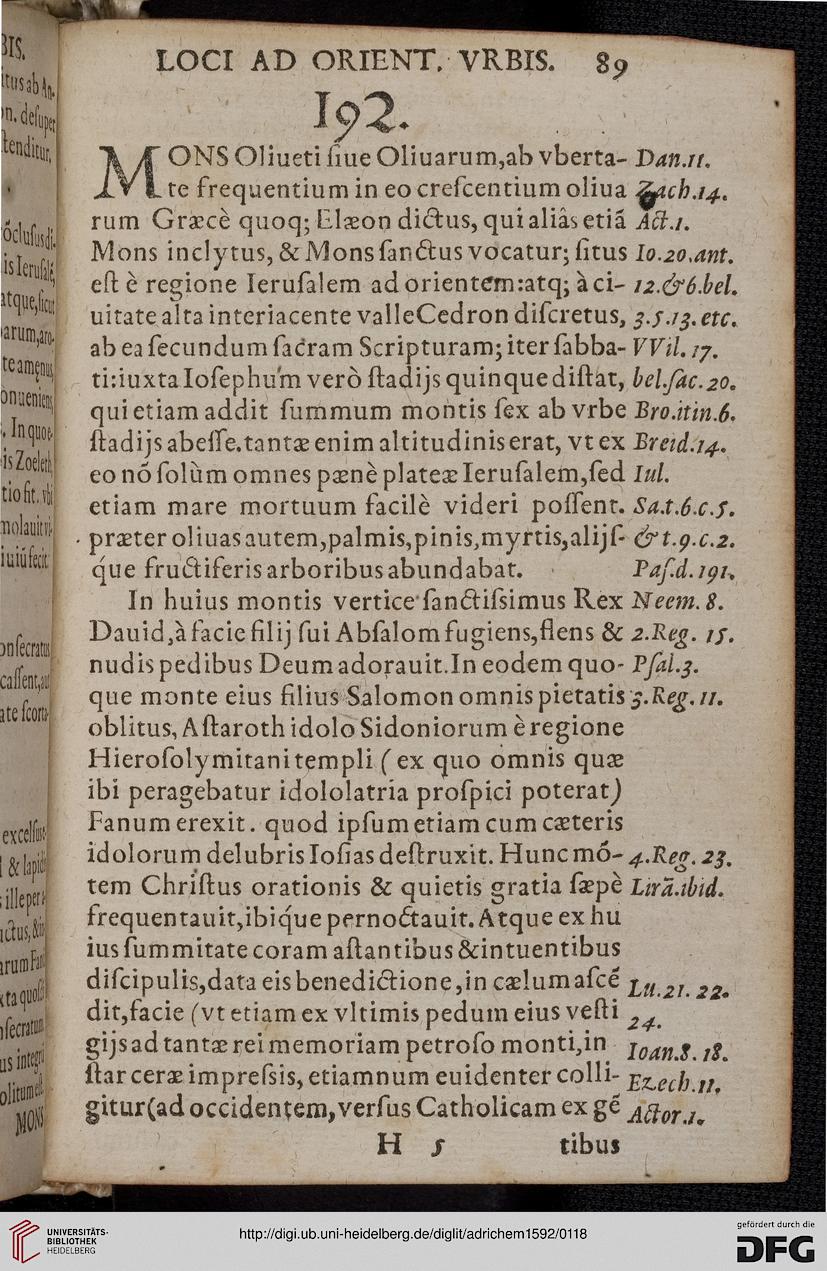 LOCI AD ORIENT. VRBIS. 89
192.
MONS Oliueti ſiue Oliuarum,ab vberta- Dan.11.
te frequentium in eo creſcentium oliua Zach.14.
rum Græcè quoq; Elæon dictus, qui aliâs etiã Act.1.
Mons inclytus, & Mons ſanctus vocatur; ſitus Io.20.ant.
eſt è regione Ieruſalem ad orientem:atq; à ci- 12.&6.bel.
uitate alta interiacente valle Cedron diſcretus, 3.5.13.etc.
ab ea ſecundum ſacram Scripturam; iter ſabba- VVil.17.
ti:iuxta Ioſephum verò ſtadijs quinque diſtat, bel.ſac.20.
qui etiam addit ſummum montis ſex ab vrbe Bro.itin.6.
ſtadijs abeſſe.tantæ enim altitudinis erat, vt ex Breid.14.
eo nó ſolùm omnes pænè plateæ Ieruſalem,ſed Iul.
etiam mare mortuum facilè videri poſſent. Sa.t.6.c.5.
præter oliuas autem,palmis,pinis,myrtis,alijſ- & t.9.c.2.
q́ue fructiferis arboribus abundabat. Paſ.d.191.
In huius montis vertice ſanctiſsimus Rex Neem.8.
Dauid,à facie filij ſui Abſalom fugiens,flens & 2.Reg. 15.
nudis pedibus Deum adorauit.In eodem quo- Pſal.3.
que monte eius filius Salomon omnis pietatis 3.Reg.11.
oblitus, Aſtaroth idolo Sidoniorum è regione
Hieroſolymitani templi ( ex quo omnis quæ
ibi peragebatur idololatria proſpici poterat)
Fanum erexit. quod ipſum etiam cum cæteris
idolorum delubris Ioſias deſtruxit. Hunc mó- 4.Reg. 23.
tem Chriſtus orationis & quietis gratia ſæpè Lirã.ibid.
frequentauit,ibiq́ue pernoctauit. Atque ex hu
ius ſummitate coram aſtantibus & intuentibus
diſcipulis,data eis benedictione,in cælum aſcé Lu.21. 22.
dit,facie (vt etiam ex vltimis pedum eius veſti 24.
gijs ad tantæ rei memoriam petroſo monti,in Ioan.8. 18.
ſtar ceræ impreſsis, etiamnum euidenter colli- Ezech.11.
gitur(ad occidentem,verſus Catholicam ex gé Actor.1.
H 5 tibus
BIS.
itus ab An-
n. deſuper
tenditur,
is Ieruſalé,
atque,ſicut
arum,aro-
te amęnus
onueniens
. In quoe-
is Zoeleth,
tio fit. vbi
iuiú fecit.
onſecratus
caſſent,aut
ate ſcorta-
& lapid
ille per
MONS
UNIVERSITÄTS-
BIBLIOTHEK
HEIDELBERG
http://digi.ub.uni-heidelberg.de/diglit/adrichem1592/0118
gefördert durch die
DFG